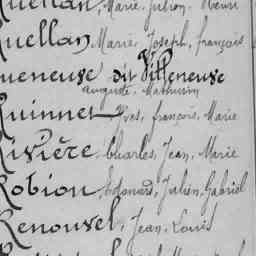 Marie, Julien, Henri
Quellan, Marie, Joseph, françois
Queneuve dit Villeneuve
auguste, Mathurin
Quinnet, Yves, françois, Marie
Rivière, Charles, Jean, Marie
Robion, Edouard, Julien, Gabriel
Renouvel, Jean, Louis